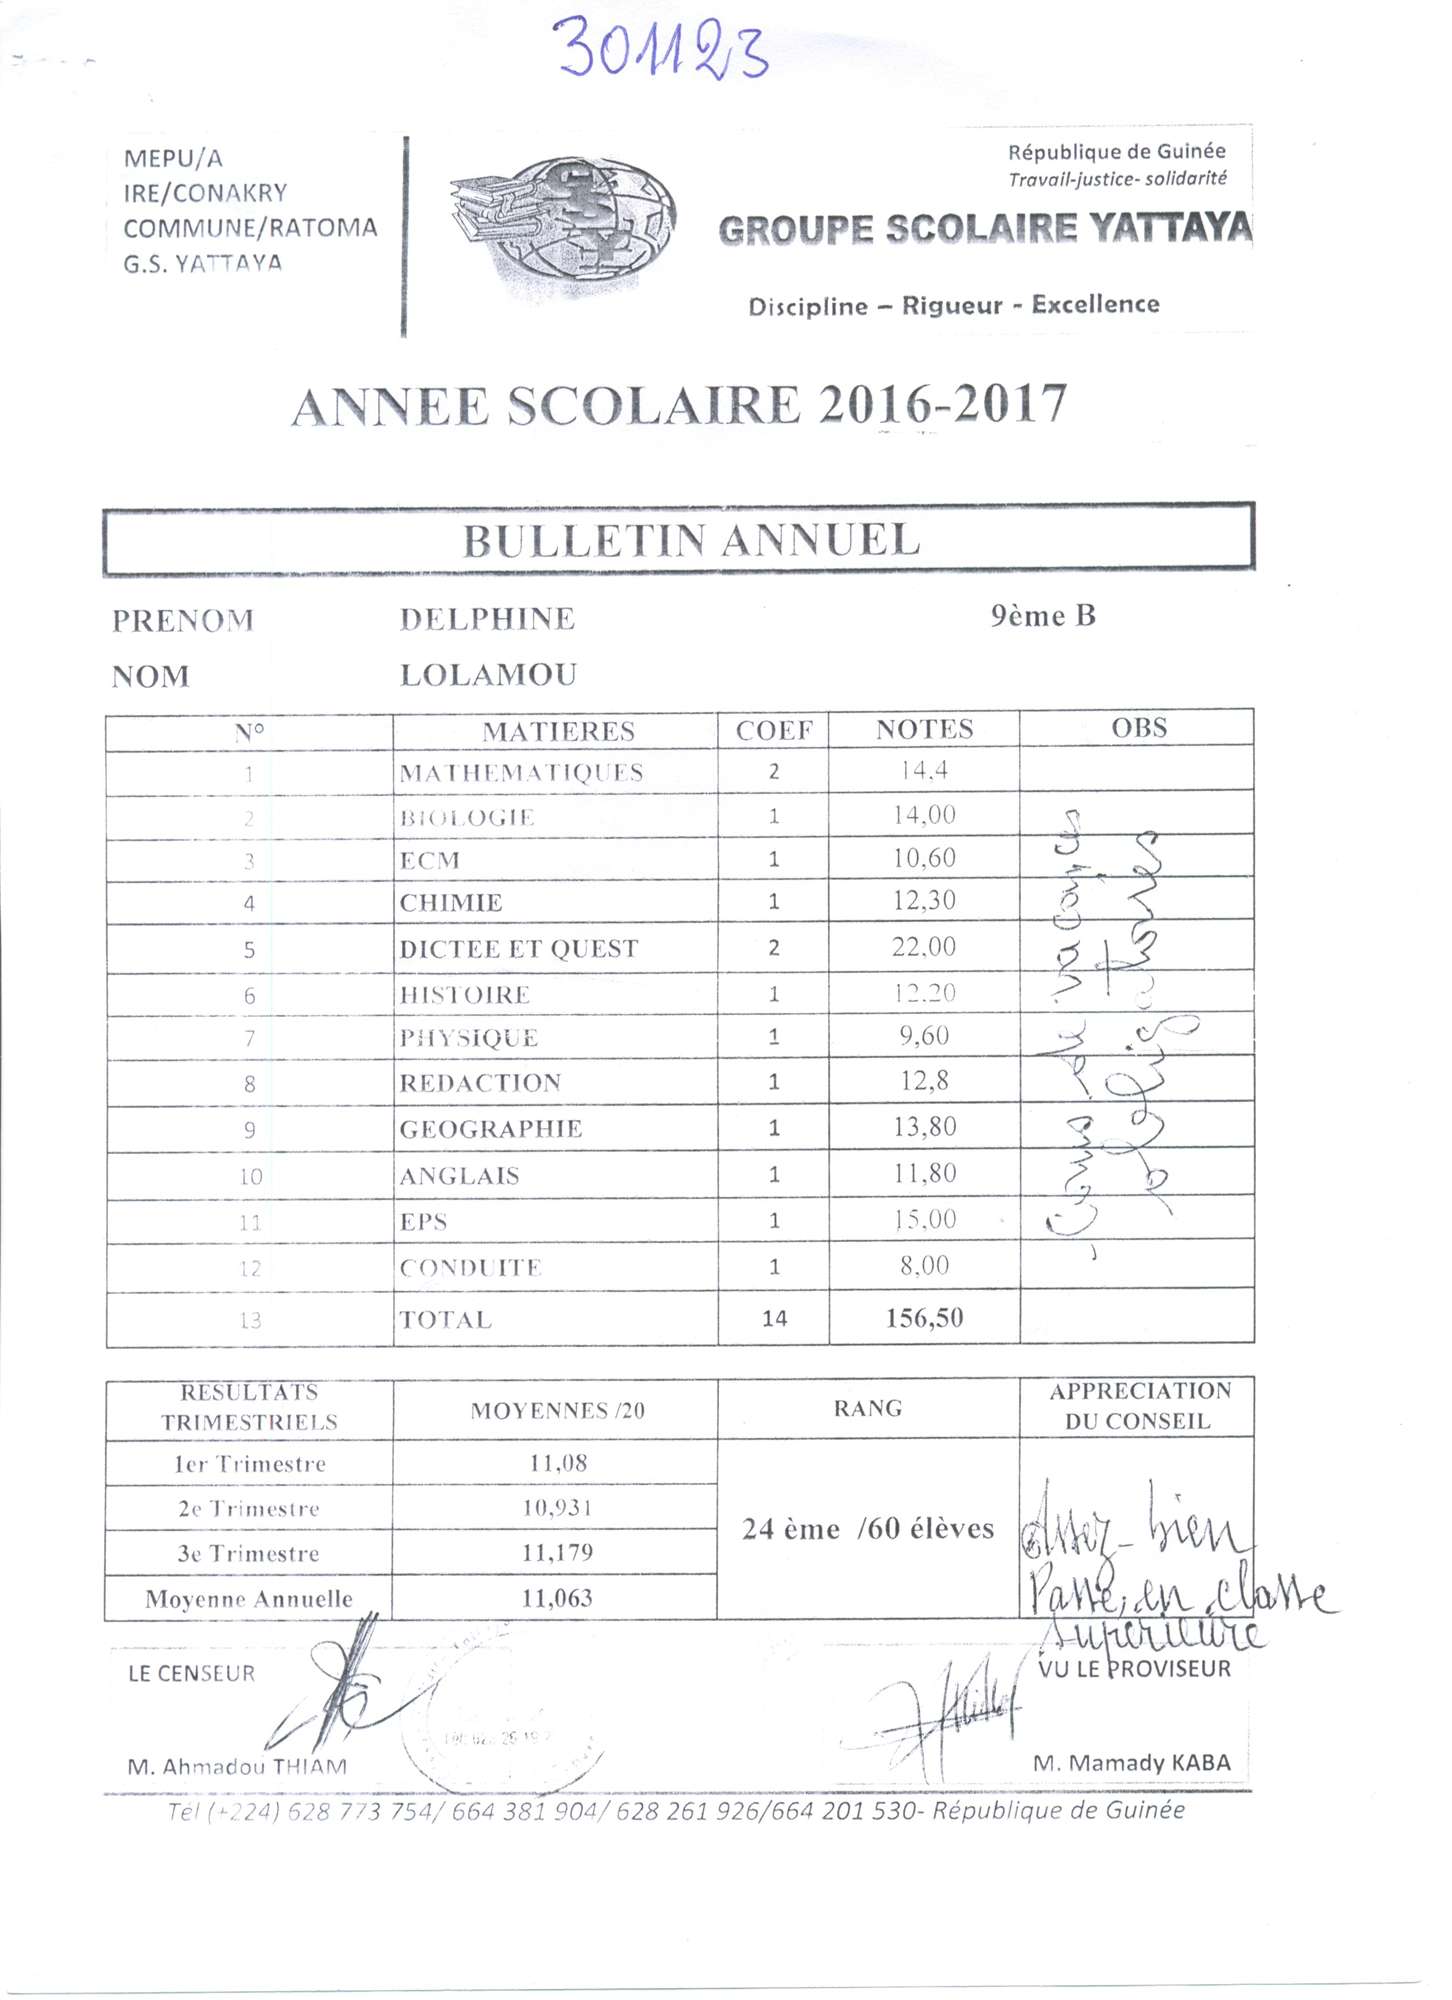 301123
MEPU/A
IRE/CONAKRY
COMMUNE/RATOMA
G.S. YATTAYA
GSY
République de Guinée
Travail-justice- solidarité
GROUPE SCOLAIRE YATTAYA
Discipline – Rigueur - Excellence
ANNEE SCOLAIRE 2016-2017
BULLETIN ANNUEL
PRENOM DELPHINE 9ème B
NOM LOLAMOU
N° MATIERES COEF NOTES OBS
1 MATHEMATIQUES 2 14.4
2 BIOLOGIE 1 14,00
3 ECM 1 10,60
4 CHIMIE 1 12,30
5 DICTEE ET QUEST 2 22,00
6 HISTOIRE 1 12.20
7 PHYSIQUE 1 9,60
8 REDACTION 1 12,8
9 GEOGRAPHIE 1 13,80
10 ANGLAIS 1 11,80
11 EPS 1 15,00
12 CONDUITE 1 8,00
13 TOTAL 14 156,50
Cours de vacances
obligatoires
RESULTATS TRIMESTRIELS MOYENNES /20 RANG APPRECIATION DU CONSEIL
1er Trimestre 11,08
2e Trimestre 10,931
3e Trimestre 11,179
Moyenne Annuelle 11,063
24 ème /60 élèves
Assez-bien
Passe en classe
supérieure
LE CENSEUR
VU LE PROVISEUR
M. Ahmadou THIAM
M. Mamady KABA
Tél (+224) 628 773 754/ 664 381 904/ 628 261 926/664 201 530- République de Guinée